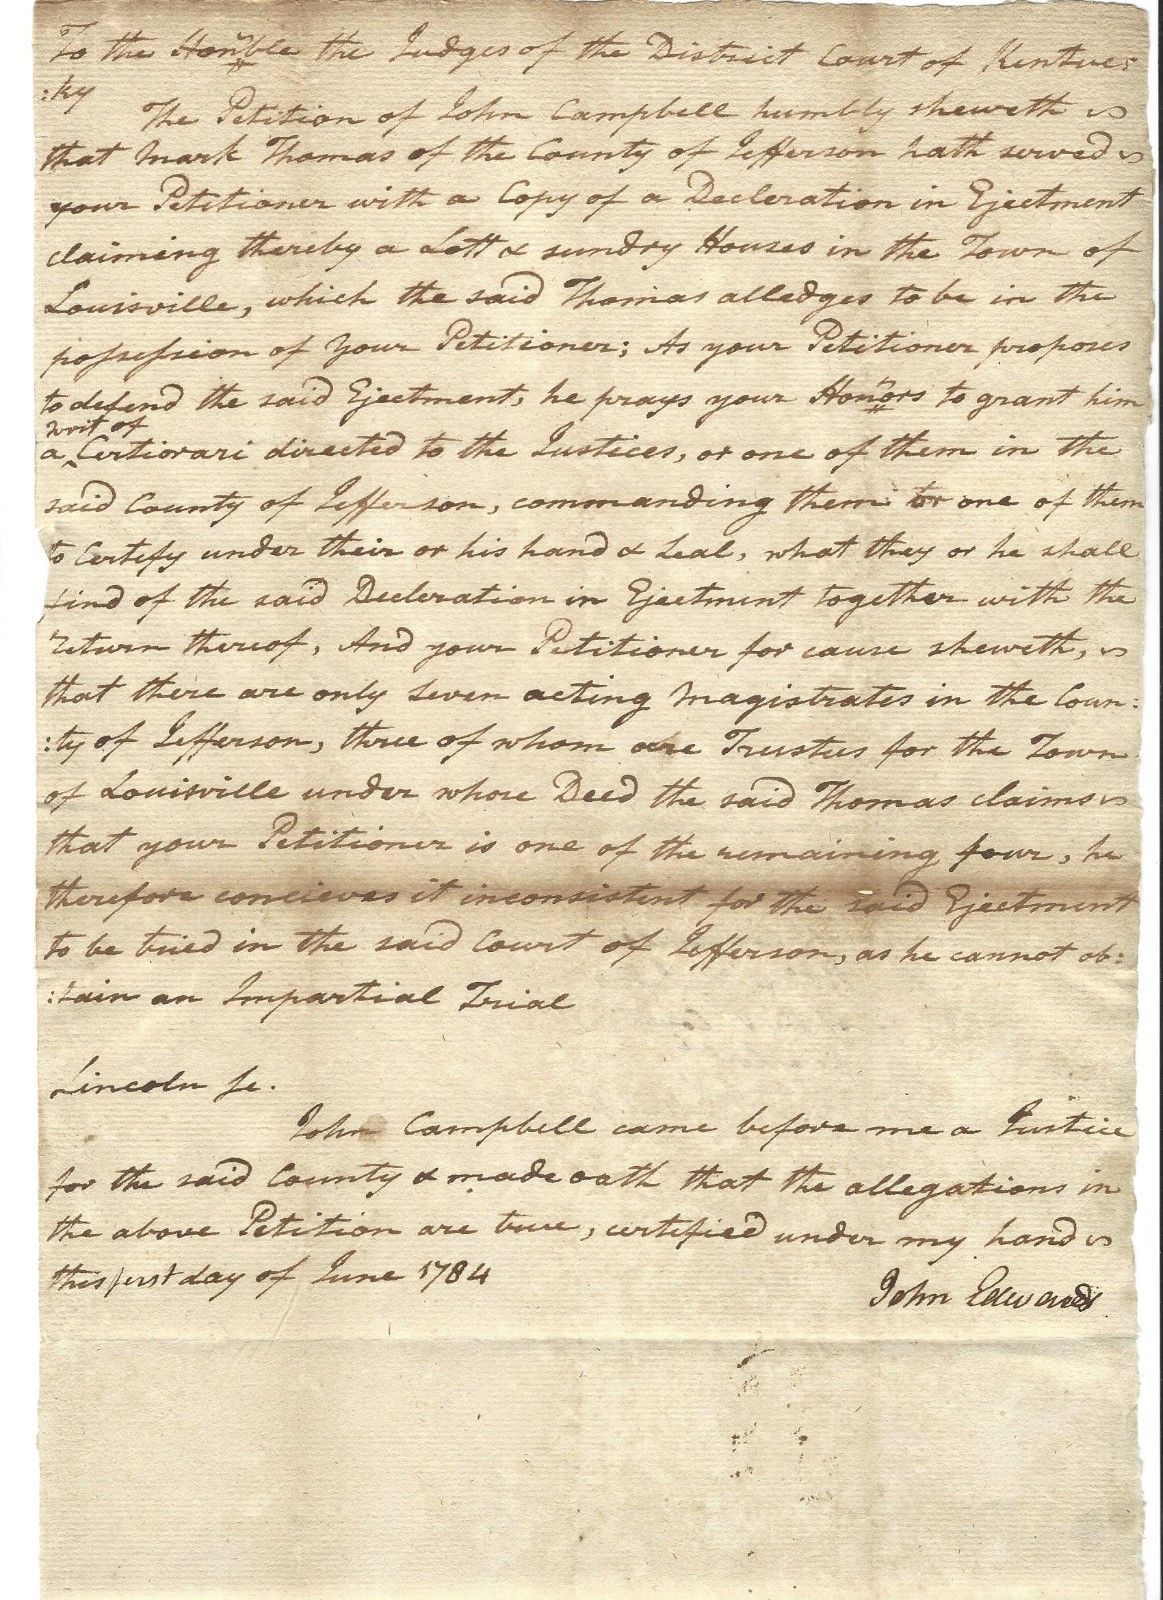 To the Hon'ble the Judges of the District Court of Kentuc:
:ky
The Petition of John Campbell humbly sheweth
that Mark Thomas of the County of Jefferson hath served
your Petitioner with a Copy of a Decleration in Ejectment
claiming thereby a Lott & sundry Houses in the Town of
Louisville, which the said Thomas alledges to be in the
possession of your Petitioner; As your Petitioner proposes
to defend the said Ejectment, he prays your Hon'ors to grant him
writ of
a ‸ Certiorari directed to the Justices, or one of them in the
said County of Jefferson, commanding them or one of them
to Certify under their or his hand & Seal, what they or he shall
find of the said Decleration in Ejectment together with the
return thereof, And your Petitioner for cause sheweth,
that there are only Seven acting Magistrates in the Coun:
:ty of Jefferson, three of whom are Trustees for the Town
of Louisville under whose Deed the said Thomas claims
that your Petitioner is one of the remaining four, he
therefore concieves it inconsistent for the said Ejectment
to be tried in the said Court of Jefferson, as he cannot ob:
:tain an Impartial Trial
Lincoln Sc.
John Campbell came before me a Justice
for the said County & made oath that the allegations in
the above Petition are true, certified under my hand
this first day of June 1784
John Edwards